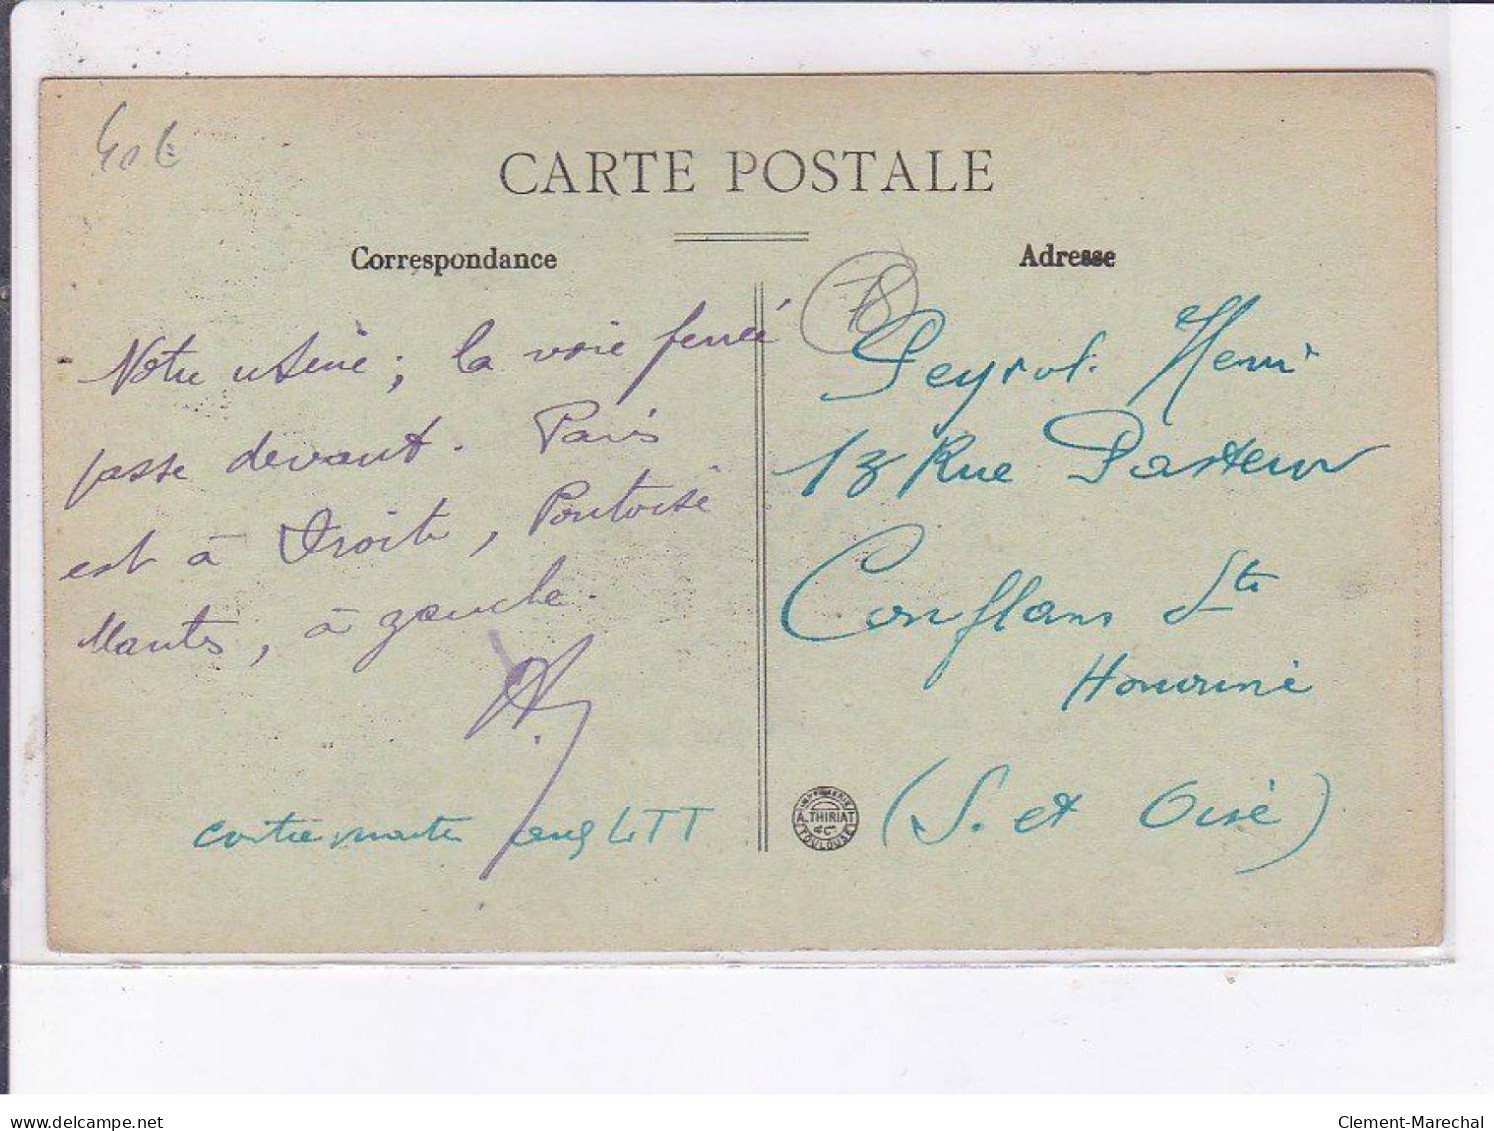 40€
CARTE POSTALE
Correspondance
Adresse
78
Notre usine; la voie ferrée
passe devant. Paris
est à Droite, Pontoise
Mantes, à gauche.
contremaitre aux LTT
Peyrol. Henri
13 Rue Pasteur
Conflans Ste
Honorine
(S. et Oise)
IMPRIMERIE
A. THIRIAT
& Cie
TOULOUSE
www.delcampe.net
Clement-Marechal